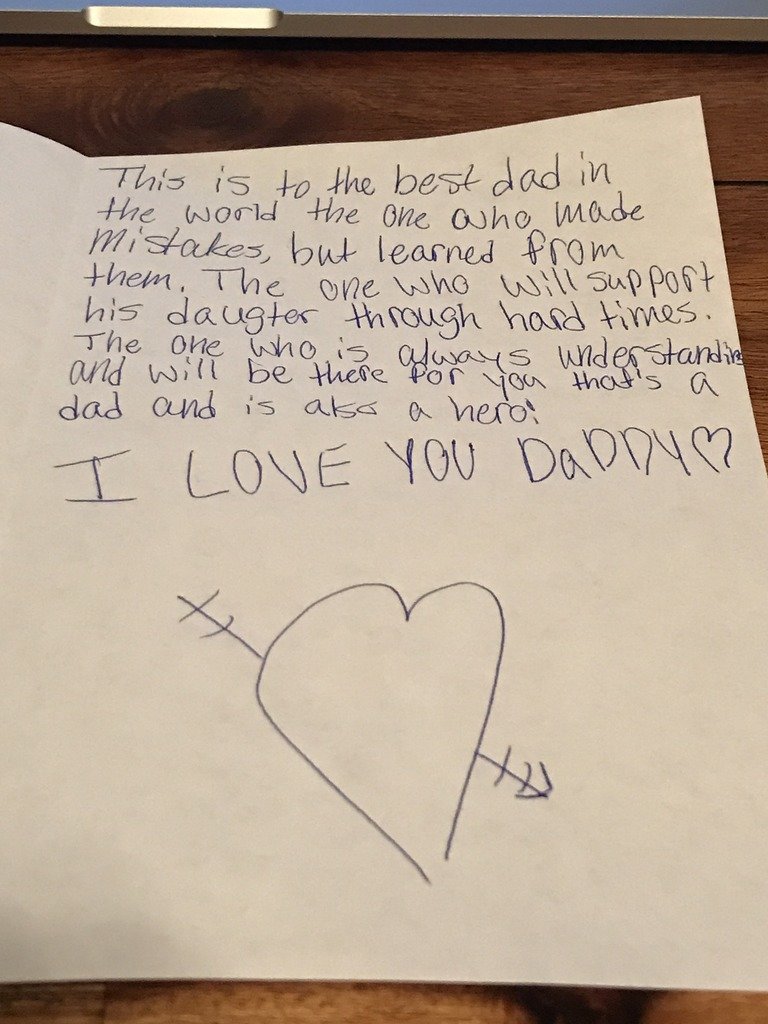 This is to the best dad in
the world the one who made
mistakes, but learned from
them. The one who will support
his daugter through hard times.
The one who is always understanding
and will be there for you that's a
dad and is also a hero!
I LOVE YOU DaDDY♡